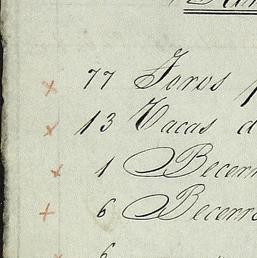 77 Toros
13 Vacas d
1 Becerr
6 Becerro
6